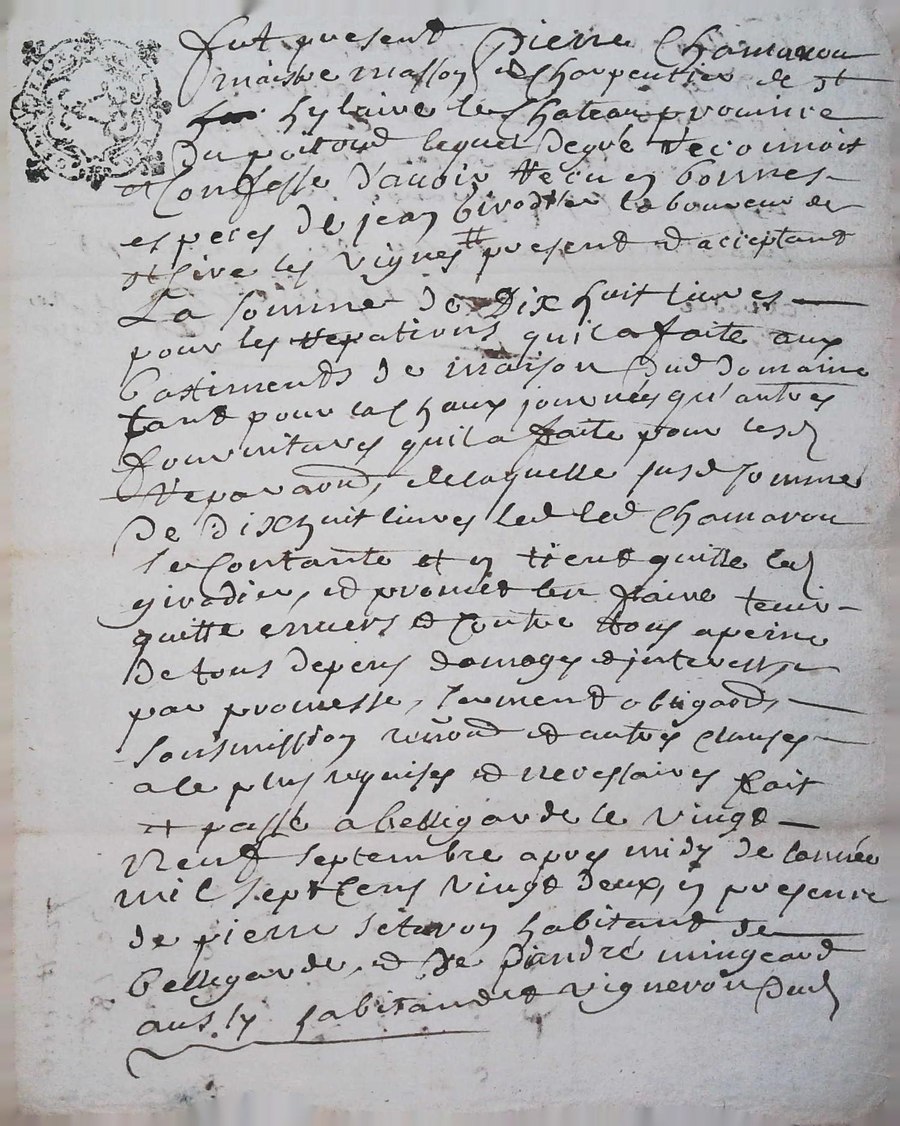 fut present Pierre Chamarou
maistre masson et charpentier de st
hylaire le Chateau province
Du poitoud lequel de gré reconnoit
et Confesse d'avoir recu en bonnes
especes de jean Girodier laboureur de
les vignes present et acceptant
La somme de Dix huit livres
pour les repations quil a faite aux
bastiments de maison dud domaine
tant pour la Chaux journées qu'autres
fournitures quil a faite pour lesd
reparaons, de laquelle susd somme
De Dix huit livres led led Chamarou
se Contante et en tient quitte led
girodier, et promet len faire tenir
quitte envers et contre tous a peine
de tous depens domages et interests
par promesse, serment obligaons,
soubmission renond et autres clauses
a le plus requises et necessaires fait
et passé a bellegarde le vingt
Neuf septembre apres midy de lannée
mil sept Cens vingt deux, en presence
de pierre habitand de
bellegarde, et de andré mingeard
aussy habitand et vigneron dud